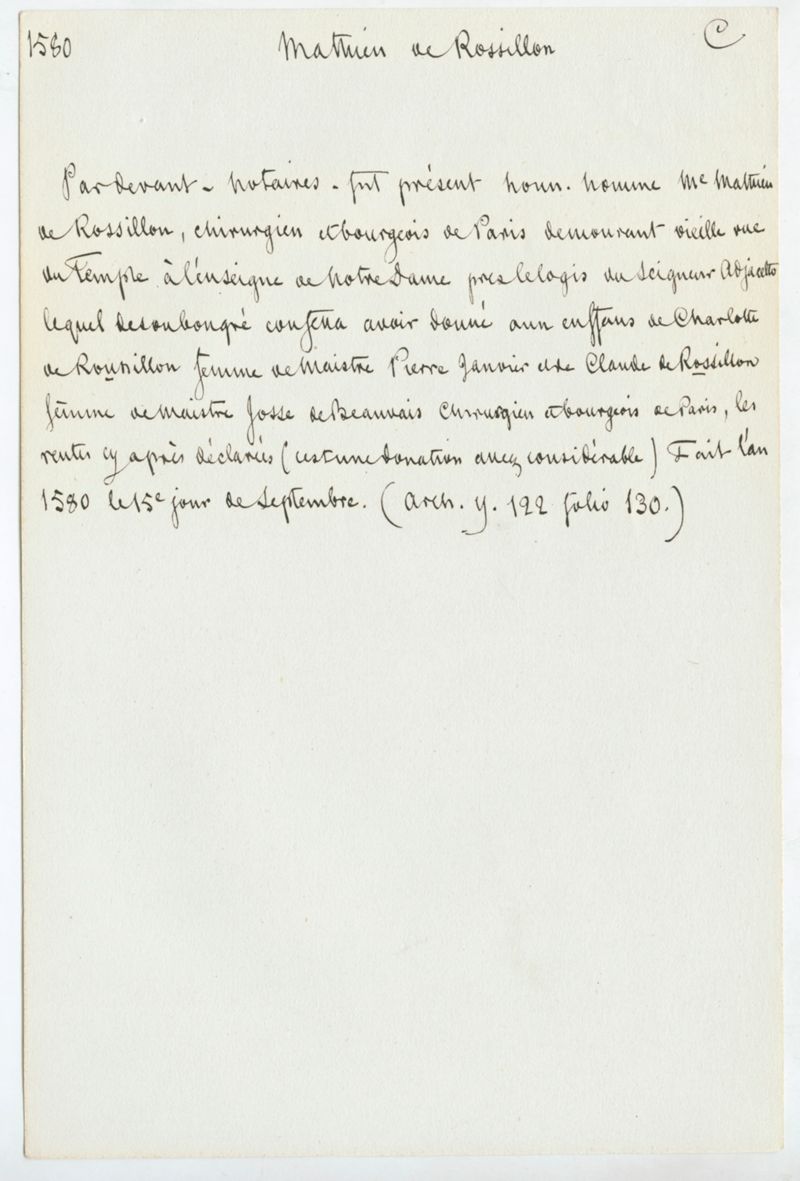 1580 Mathieu de Rossillon C
Par devant - notaires - fut présent honn. homme Me Mathieu
de Rossillon, chirurgien et bourgeois de Paris demourant vieille rue
du Temple à l'enseigne de Notre Dame pres le logis du Seigneur
lequel de son bon gré confessa avoir donné aux enffans de Charlotte
de Roussillon femme de Maistre Pierre Janvier et de Claude de Rossillon
femme de Maistre Josse de Beauvais chirurgien et bourgeois de Paris, les
rentes cy après déclarées (c'est une donation assez considérable) Fait l'an
1580 le 15e jour de Septembre. (Arch. Y. 122 folio 130.)